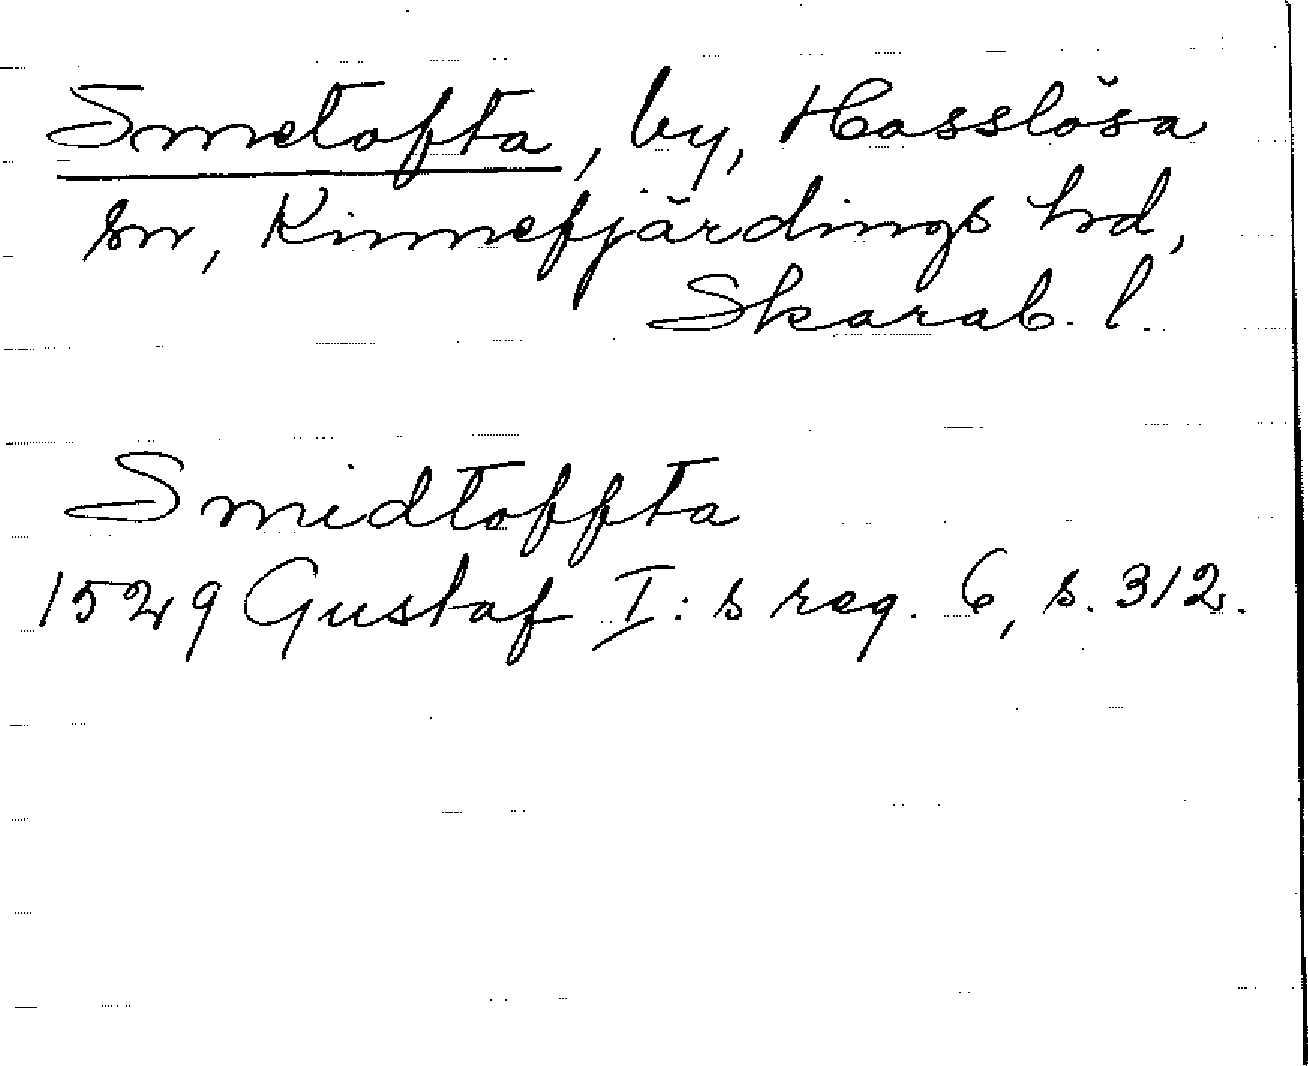 Smetofta, by, Hasslösa
sn, Kinnefjärdings hd,
Skarab. l.
Smidtoffta
1529 Gustaf I:s reg. 6, s. 312.